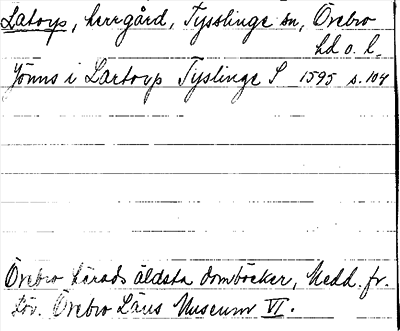 Latorp, herrgård, Tysslinge sn, Örebro
hd o. l.
Jönns i Lartorp Tyslinge S 1595 s. 104
Örebro härads äldsta domböcker, Medd. fr.
för. Örebro Läns Museum VI.